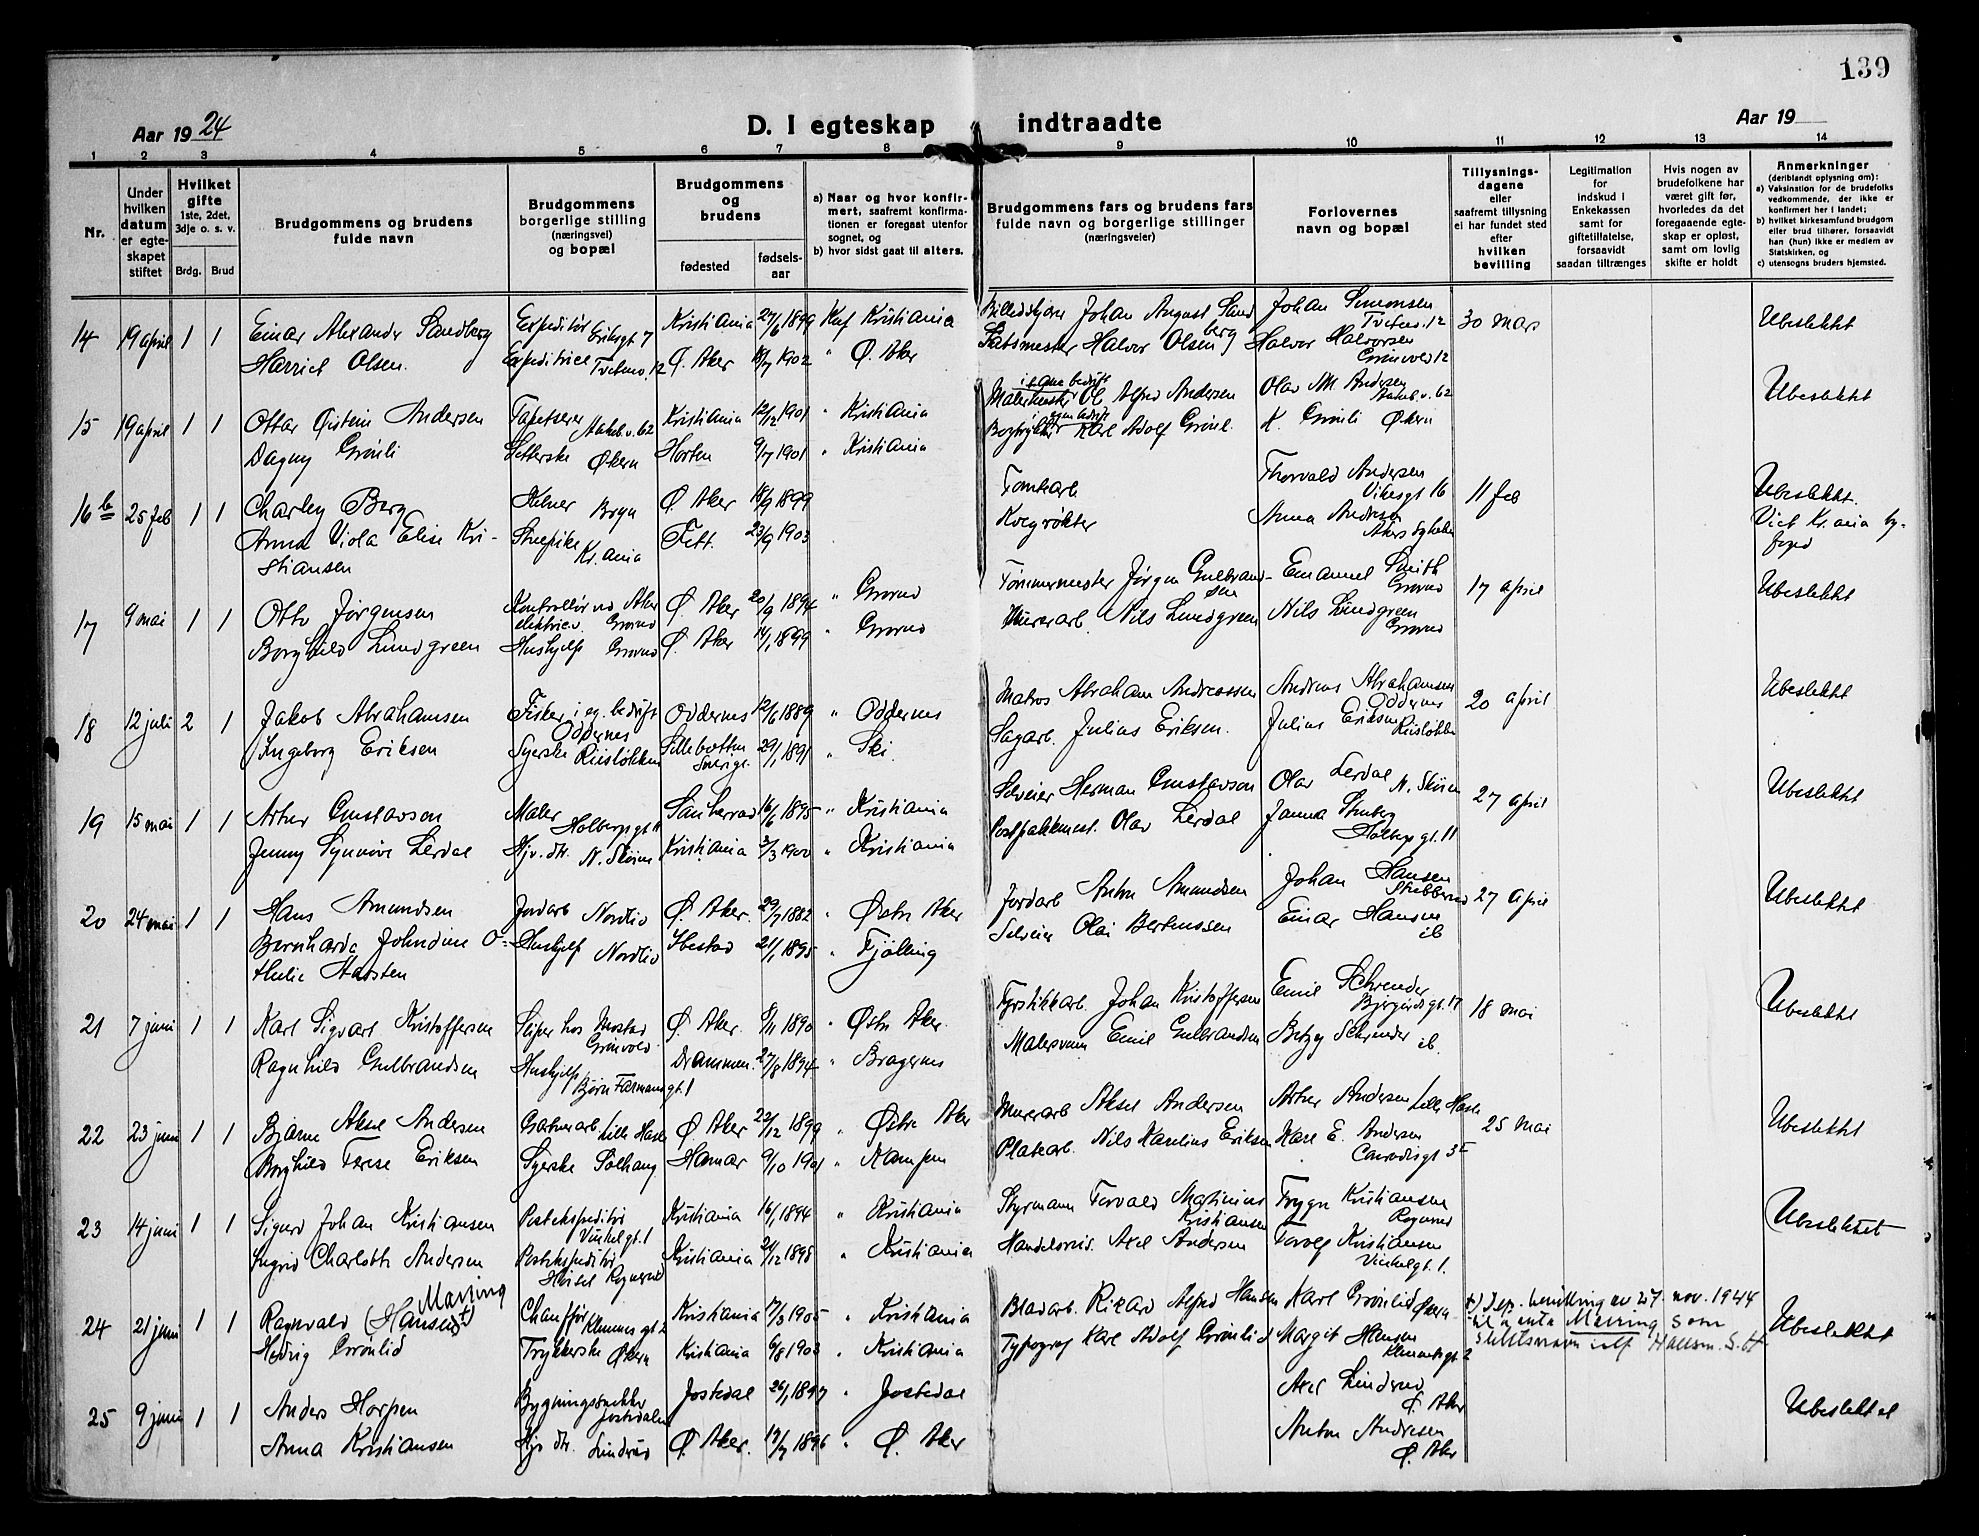 139
Aar 19 24
D. I egteskap indtraadte
Aar 19
1 2 3 4 5 6 7 8 9 10 11 12 13 14
Nr.
Under hvilken datum er egteskapet stiftet
Hvilket gifte
1ste, 2det, 3dje o. s. v.
Brdg. Brud
Brudgommens og brudens fulde navn
Brudgommens borgerlige stilling (næringsvei) og bopæl
Brudgommens og brudens
fødested
fødselsaar
a) Naar og hvor konfirmert, saafremt konfirmationen er foregaat utenfor sognet, og
b) hvor sidst gaat til alters.
Brudgommens fars og brudens fars fulde navn og borgerlige stillinger (næringsveier)
Forlovernes navn og bopæl
Tillysningsdagene eller saafremt tillysning ei har fundet sted efter hvilken bevilling
Legitimation for indskud i Enkekassen samt for giftetillatelse, forsaavidt saadan tiltrænges
Hvis nogen av brudefolkene har været gift før, hvorledes da det foregaaende egteskap er opløst, samt om lovlig skifte er holdt
Anmerkninger
(deriblandt oplysning om):
a) Vaksination for de brudefolks vedkommende, der ikke er konfirmert her i landet;
b) hvilket kirkesamfund brudgom eller brud tilhører, forsaavidt han (hun) ikke er medlem av Statskirken, og
c) utensogns bruders hjemsted.
14 19 april 1 1 Einar Alexander Sandberg Expeditør Eriksgt 7 Kristiania 27/6 1899 Kristiania Johan August Sandberg Johan Simonsen Tvetenv. 12 30 mars Ubeslektet
Harriet Olsen. Expeditrice Tvetenv. 12 Ø. Aker 1902 " Ø. Aker Halvor Olsen Halvor Halvorsen Grønvold 12
15 19 april 1 1 Ottar Øistein Andersen Tapetserer Kristiania 12/12 1901 " Kristiania Malermester i egne bedrift Ol. Alfred Andersen Olav M. Andersen Ubeslektet
Dagny Grønli Setterske Økern Horten 9/7 1901 " Kristiania Karl Adolf Grønl. K. Grønli Økern
16 b 25 feb 1 1 Charley Berg Kelner Bryn Ø. Aker 18/9 1899 Tomtearb Thorvald Andersen Vikesgt 16 11 feb Ubeslektet.
Anna Viola Elise Kristiansen Kr.ania Fett. 23/9 1903 Kvegrøkter Anna Andresen Viet Kr.ania byfoged
17 9 mai 1 1 Otto Jørgensen Kontrollør ved Aker elektricv. Grorud Ø. Aker 20/9 1894 " Grorud Tømmermester Jørgen Gulbrandsen Emanuel Smith Grorud 17 april Ubeslektet
Borghild Lundgreen Hushjelp Grorud Ø. Aker 14/1 1899 " Grorud Murerarb. Nils Lundgreen Nils Lundgreen Grorud
18 12 juli 2 1 Jakob Abrahamsen Fisker i eg. bedrift Oddernes Oddernes 12/6 1889 " Oddernes Matros Abraham Andreassen Andreas Abrahamsen Oddernes 20 april Ubeslektet
Ingeborg Eriksen Syerske Riisløkken Sillebotten Sverige. 29/1 1891 " Ski. Sagarb. Julius Eriksen. Julius Eriksen Riisløkken
19 15 mai 1 1 Artur Gustavson Maler Holbergsgt 11 Sauherad 16/6 1895 " Kristiania Selveier Herman Gustavson Olav Lerdal N. Skøien 27 april Ubeslektet
Jenny Synnøve Lerdal Hjv. dtr. N. Skøien Kristiania 3/3 1900 " Kristiania Postpakkmest. Olav Lerdal Janna Holbergsgt. 11
20 24 mai 1 1 Hans Amundsen Jordarb Nordliv Ø. Aker. 29/7 1882 " Østre Aker Jordarb Anton Amundsen Johan Hansen Stubberud 27 april Ubeslektet
Bernharda Johndine Othelie Harsten Hushjelp Nordliv Ibestad 21/1 1895 " Fjølling Selveier Olai Berntssen Einar Hansen ib
21 7 juni 1 1 Karl Sigvart Kristoffersen Sliper hos Mustad Grønvold Ø. Aker. 8/11 1890 " Østre Aker. Fyrstikkarb Johan Kristoffersen Emil Schrender 18 mai Ubeslektet
Ragnhild Gulbrandsen Hushjelp Bjørn Farmannsgt. 1 Drammen. 27/8 1894 " Bragernes Malersvenn Emil Gulbrandsen Betzy Schrender ib.
22 23 juni 1 1 Bjarne Aksel Andersen Gartnerarb. Lille Hasle Ø. Aker 22/12 1899 " Østre Aker Murerarb Aksel Andersen Artur Andersen Lille Hasle 25 mai Ubeslektet
Borghild Terese Eriksen Syerske Solhaug Hamar 9/10 1901 " Kampen Platearb. Nils Karelius Eriksen Kare E. Andersen Conradisgt 35
23 14 juni 1 1 Sigurd Johan Kristiansen Postekspeditør Vinkelgt. 1 Kristiania 16/1 1894 " Kristiania Styrmann Torvald Martinius Kristiansen Trygve Kristiansen Rognerud Ubeslektet
Ingrid Charlotte Andersen Postekspeditør Rognerud Kristiania 21/12 1898 " Kristiania Axel Andersen Torolf Kristiansen Vinkelgt. 1.
24 21 juni 1 1 Ragnvald (Hansen) Meiring x) Chauffør Klemmesgt 2 Kristiania 17/3 1905 " Kristiania Bladarb. Rikard Alfred Hansen Karl Grønlid Økern x) Dep. bevilling av 27. nov. 1944 til å anta Meiring som slektsnavn istf Hansen. S. H Ubeslektet
Hedvig Grønlid Trykkerske Økern Kristiania 6/8 1903 " Kristiania Typograf Karl Adolf Grønlid Margit Hansen
25 9 juni 1 1 Anders Horpen Bygningssnekker Jostedalen Jostedal 26/1 1897 " Jostedal Axel Linderud Ø. Aker Ubeslektet
Anna Kristiansen Hjv dtr. Linderud Ø. Aker. 19/7 1896 " Ø. Aker Anton Andresen Ø. Aker